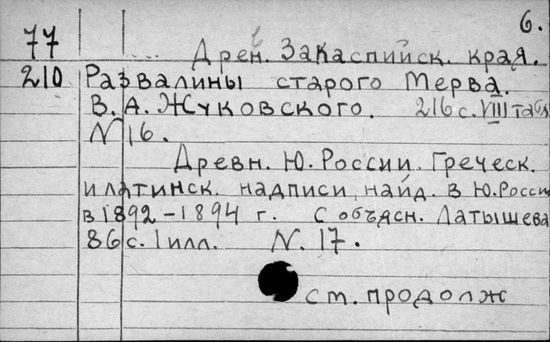 6.
77 ... Древ. Закаспийск. края.
210 Развалины старого Мерва.
В. А. Жуковского. 216 с. VIII табл
N 16.
Древн. Ю. России. Греческ.
и латинск. надписи найд. в Ю. Росси
в 1892-1894 г. С объясн. Латышева
86 с. 1 илл. N. 17.
ст. продолж